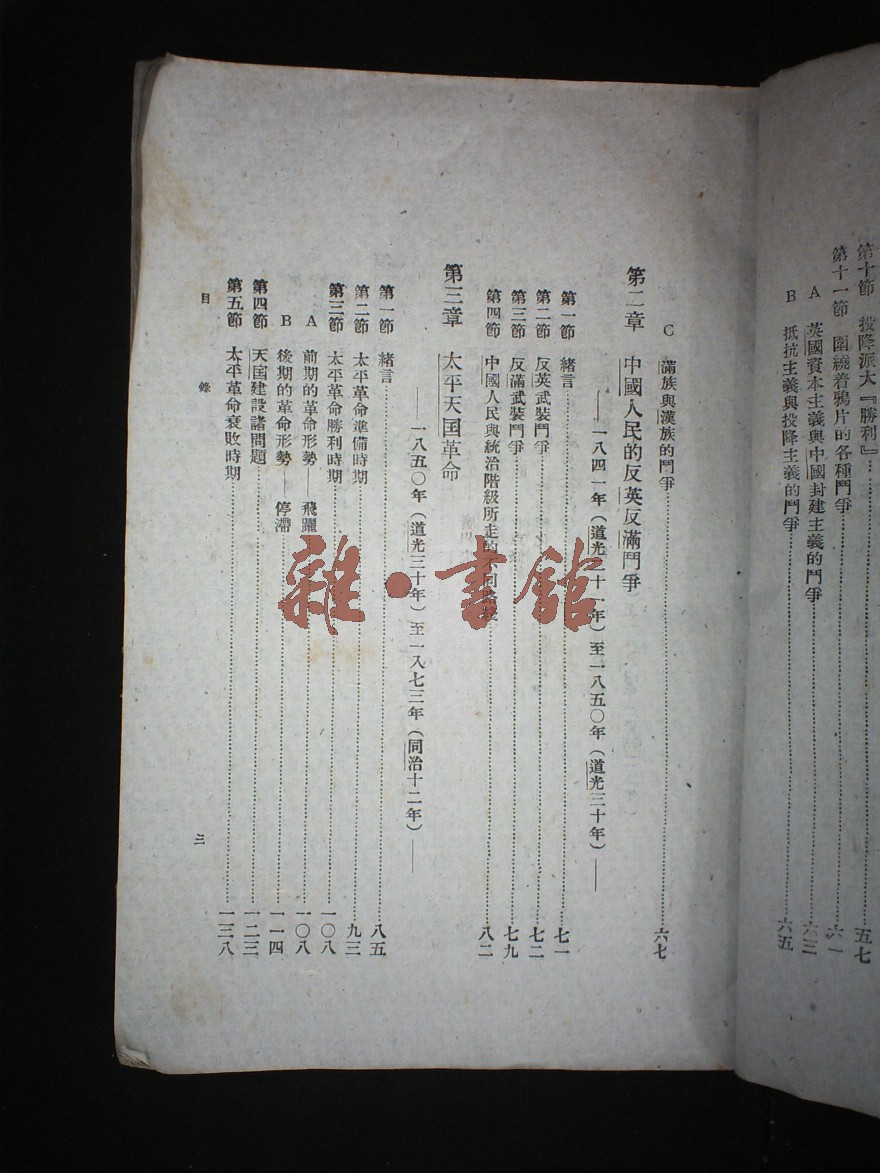 第十節 投降派大『勝利』……五七
第十一節 圍繞着鴉片的各種鬥爭……六一
A 英國資本主義與中國封建主義的鬥爭……六三
B 抵抗主義與投降主義的鬥爭……六五
C 滿族與漢族的鬥爭……六七
第二章 中國人民的反英反滿鬥爭
——一八四一年(道光二十一年)至一八五〇年(道光三十年)——
第一節 緒言……七一
第二節 反英武裝鬥爭……七二
第三節 反滿武裝鬥爭……七九
第四節 中國人民與統治階級所走的不同路線……八二
第三章 太平天国革命
——一八五〇年(道光三十年)至一八七三年(同治十二年)——
第一節 緒言……八五
第二節 太平革命準備時期……九三
第三節 太平革命勝利時期……一〇八
A 前期的革命形勢——飛躍……一〇八
B 後期的革命形勢——停滯……一一四
第四節 天国建設諸問題……一二三
第五節 太平革命衰敗時期……一三八
目錄
三
雜·書館